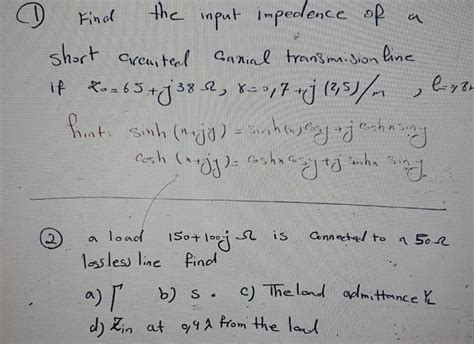 ① Find the input impedence of a
short circuited coaxial transmission line
if Z₀ = 65 + j 38 Ω, γ = 0,7 + j (2,5)/m , l = 0,8m
hint: sinh (x+jy) = sinh(x) cosy + j coshx siny
cosh (x+jy) = coshx cosy + j sinhx siny
② a load 150 + 100j Ω is Connected to a 50 Ω
lossless line find
a) Γ b) s . c) The load admittance Y_L
d) Zin at 0,4 λ from the load